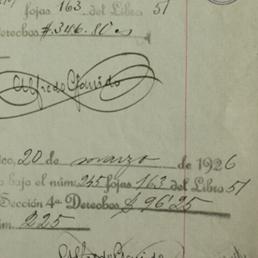 fojas 163 del Libro 51
Derechos $ 346.80 cs
Alfredo Garrido
20 de marzo de 1926
bajo el núm: 245 fojas 163 del Libro 51
Sección 4ª Derechos $ 96'25
225
Alfredo Garrido